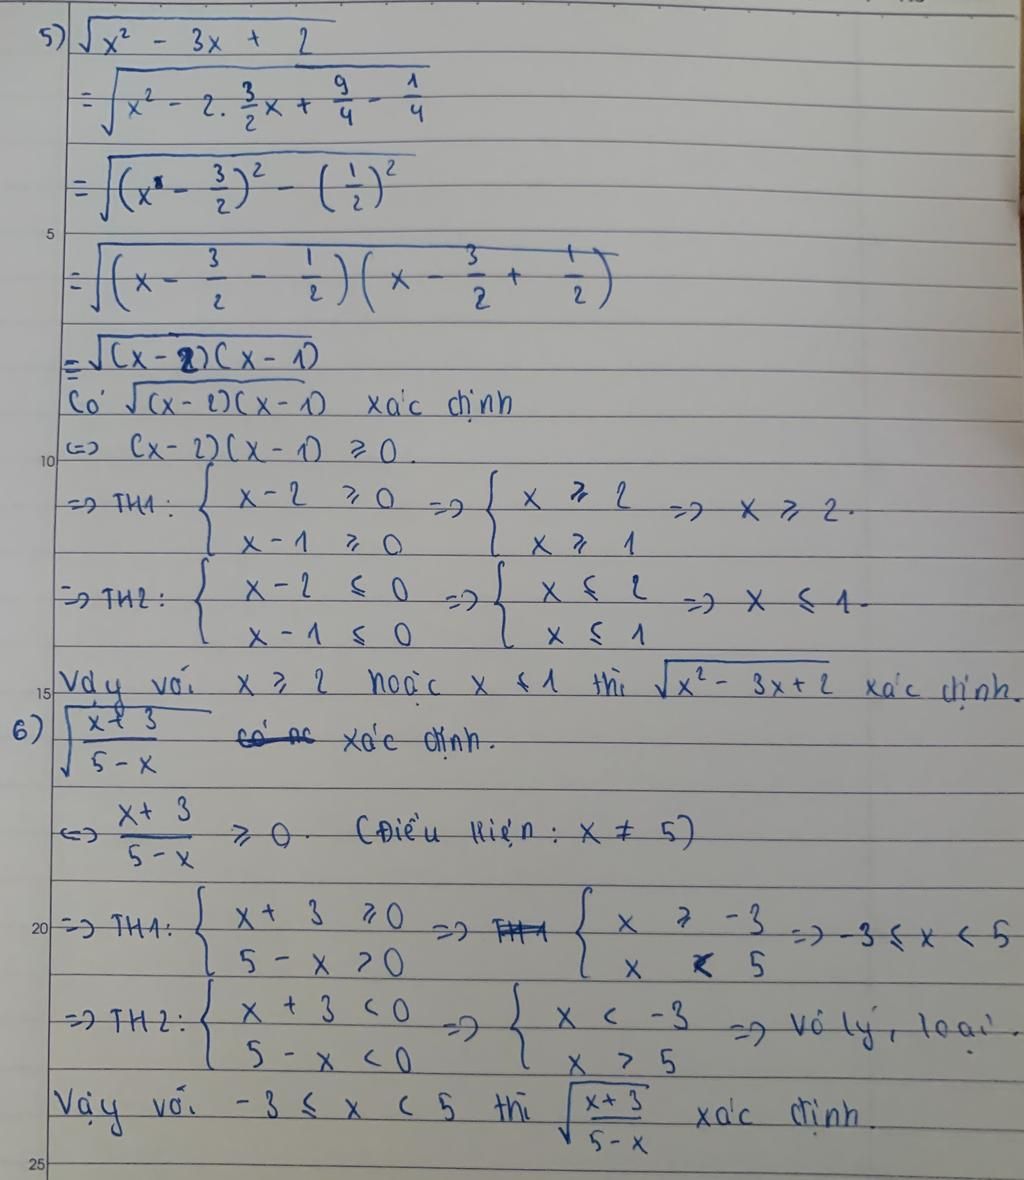 5) √(x² - 3x + 2)
= √(x² - 2. 3/2 x + 9/4 - 1/4)
= √((x - 3/2)² - (1/2)²)
5
= √((x - 3/2 - 1/2)(x - 3/2 + 1/2))
= √((x - 2)(x - 1))
Có √((x - 2)(x - 1)) xác định
10 <=> (x - 2)(x - 1) ≥ 0.
=> TH1: { x - 2 ≥ 0 ; x - 1 ≥ 0 => { x ≥ 2 ; x ≥ 1 => x ≥ 2.
=> TH2: { x - 2 ≤ 0 ; x - 1 ≤ 0 => { x ≤ 2 ; x ≤ 1 => x ≤ 1.
15 Vậy với x ≥ 2 hoặc x ≤ 1 thì √(x² - 3x + 2) xác định.
6) √((x + 3)/(5 - x)) xác định.
<=> (x + 3)/(5 - x) ≥ 0. (Điều kiện: x ≠ 5)
20 => TH1: { x + 3 ≥ 0 ; 5 - x > 0 => TH1 { x ≥ -3 ; x < 5 => -3 ≤ x < 5
=> TH2: { x + 3 < 0 ; 5 - x < 0 => { x < -3 ; x > 5 => Vô lý, loại.
Vậy với -3 ≤ x < 5 thì √((x + 3)/(5 - x)) xác định.
25